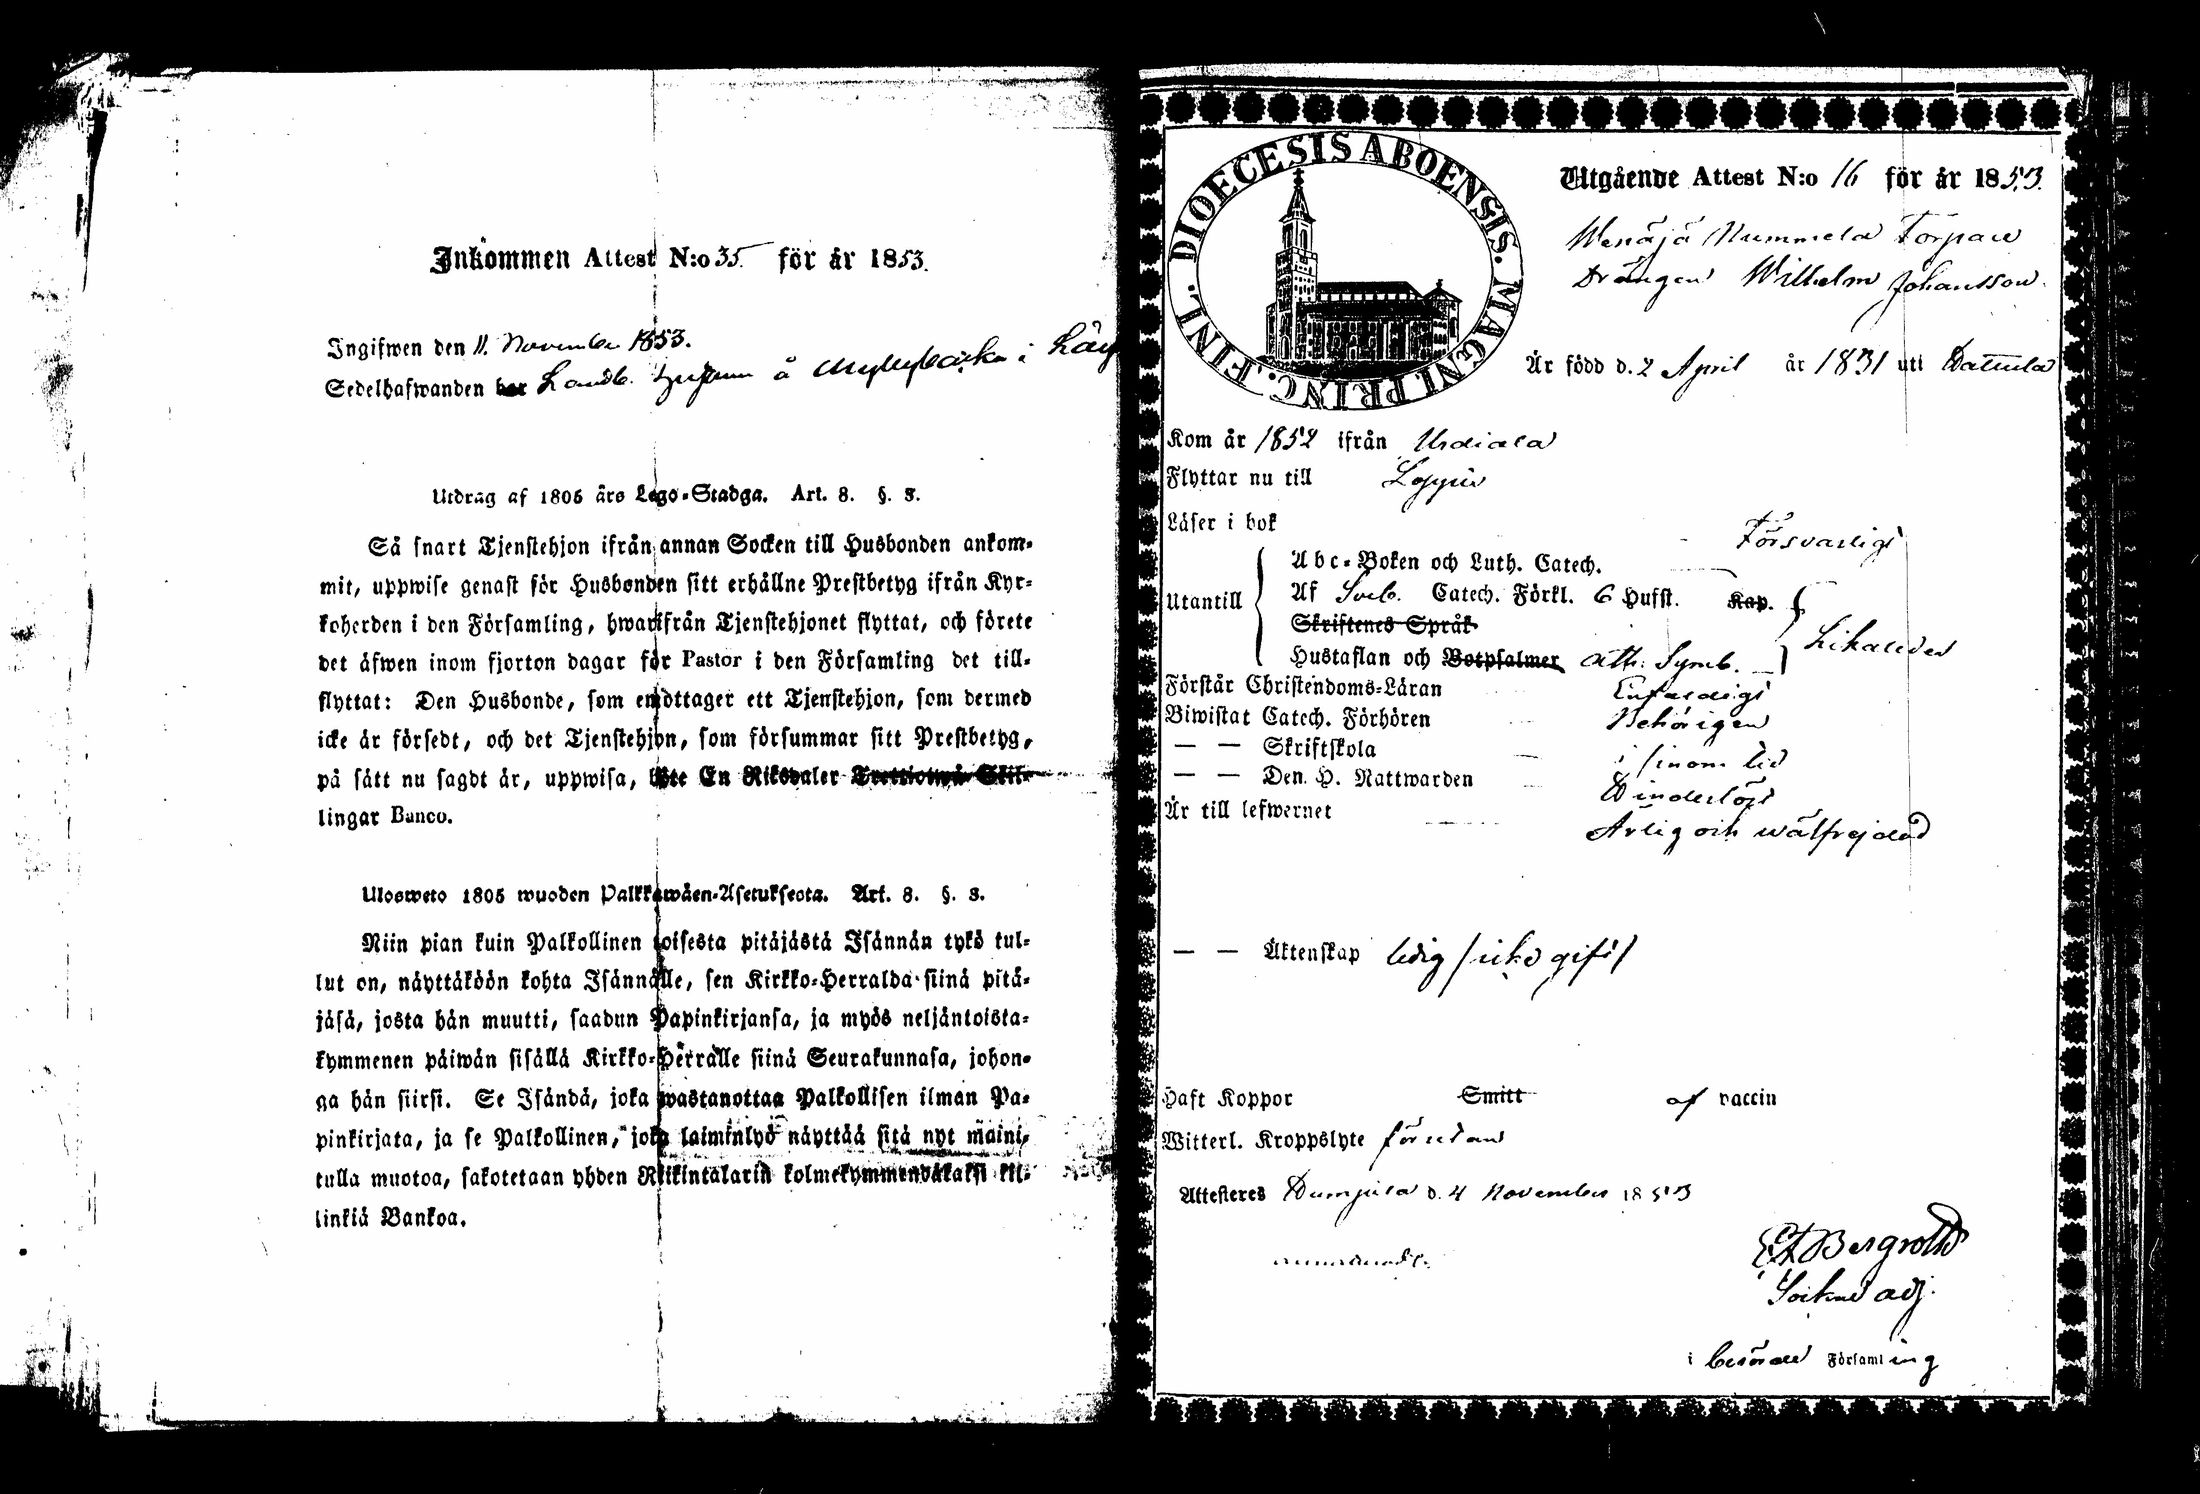 Inkommen Attest N:o 35 för år 1853.
Ingifwen den 11. November 1853.
Sedelhafwanden har Landb. å i
Utdrag af 1805 års Lego-Stadga. Art. 8. §. 3.
Så snart Tjenstehjon ifrån annan Socken till Husbonden ankom-
mit, uppwise genast för Husbonden sitt erhållne Prestbetyg ifrån Kyr-
koherden i den Församling, hwarifrån Tjenstehjonet flyttat, och förete
det äfwen inom fjorton dagar för Pastor i den Församling det till-
flyttat: Den Husbonde, som emottager ett Tjenstehjon, som dermed
icke är försedt, och det Tjenstehjon, som försummar sitt Prestbetyg,
på sätt nu sagdt är, uppwisa, böte En Riksdaler Trettiotwå Skil-
lingar Banco.
Ulosweto 1805 wuoden Palkkawäen-Asetuksesta. Art. 8. §. 3.
Niin pian kuin Palkollinen toisesta pitäjästä Isännän tykö tul-
lut on, näyttäköön kohta Isännälle, sen Kirkko-Herralda siinä pitä-
jäsä, josta hän muutti, saadun Papinkirjansa, ja myös neljäntoista-
kymmenen päiwän sisällä Kirkko-Herralle siinä Seurakunnasa, johon-
ga hän siirsi. Se Isändä, joka wastanottaa Palkollisen ilman Pa-
pinkirjata, ja se Palkollinen, joka laiminlyö näyttää sitä nyt maini-
tulla muotoa, sakotetaan yhden Riikintalarin kolmekymmendäkaksi kil-
linkiä Bankoa.
DIOECESIS ABOENSIS. MAGNI PRINC. FINL.
Utgående Attest N:o 16 för år 1853.
Wenäjä Nummela Torpare
Drängen Wilhelm Johansson.
Är född d. 2 April år 1831 uti Dattula
Kom år 1852 ifrån Urdiala
Flyttar nu till Loppis
Läser i bok Försvarligt
Utantill
Abc-Boken och Luth. Catech.
Af Sveb. Catech. Förkl. 6 Hufst. Kap.
Skriftenes Språk
Hustaflan och Botpsalmer Ath: Symb. Likaledes
Förstår Christendoms-Läran Enfaldigt
Biwistat Catech. Förhören Behörigen
— — Skriftskola i sinom tid
— — Den H. Nattwarden
Är till lefwernet Ärlig och wälfrejdad
— — Äktenskap ledig / icke gift /
Haft Koppor Smitt af vaccin
Witterl. Kroppslyte förutan
Attesteres d. 4 November 1853
Bergroth
adj.
i berörde Församling